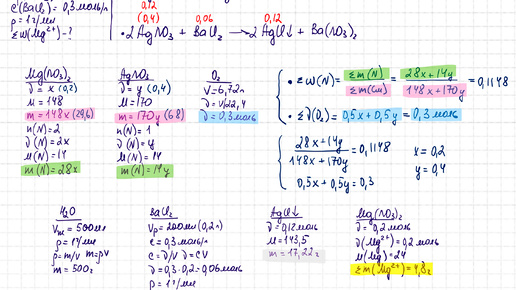 C(BaCl₂) = 0,3 моль/л
ρ = 1 г/мл
Σω(Mg²⁺) - ?
0,12
(0,4)
0,06
0,12
• 2AgNO₃ + BaCl₂ → 2AgCl↓ + Ba(NO₃)₂
Mg(NO₃)₂
ν = x (0,2)
M = 148
m = 148x (29,6)
n(N) = 2
ν(N) = 2x
M(N) = 14
m(N) = 28x
AgNO₃
ν = y (0,4)
M = 170
m = 170y (68)
n(N) = 1
ν(N) = y
M(N) = 14
m(N) = 14y
O₂
V = 6,72л
ν = V/22,4
ν = 0,3 моль
• Σω(N) = Σm(N) / Σm(см) = 28x + 14y / 148x + 170y = 0,1148
• Σν(O₂) = 0,5x + 0,5y = 0,3 моль
28x + 14y / 148x + 170y = 0,1148
0,5x + 0,5y = 0,3
x = 0,2
y = 0,4
H₂O
Vm = 500мл
ρ = 1 г/мл
ρ = m/V m = ρV
m = 500г
BaCl₂
Vр = 200мл (0,2л)
C = 0,3 моль/л
C = ν/V ν = CV
ν = 0,3 · 0,2 = 0,06моль
ρ = 1 г/мл
AgCl↓
ν = 0,12моль
M = 143,5
m = 17,22г
Mg(NO₃)₂
ν = 0,2моль
ν(Mg²⁺) = 0,2 моль
M(Mg) = 24
Σm(Mg²⁺) = 4,8г